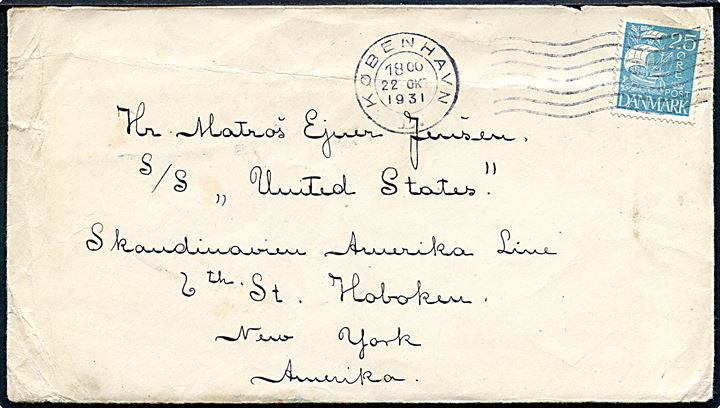 KØBENHAVN
18 00
22 OKT
1931
25
ØRE
POST
DANMARK
Hr. Matroš Ejner Jensen.
S/S „United States".
Skandinavien Amerika Line
6th. St. Hoboken.
New York
Amerika.